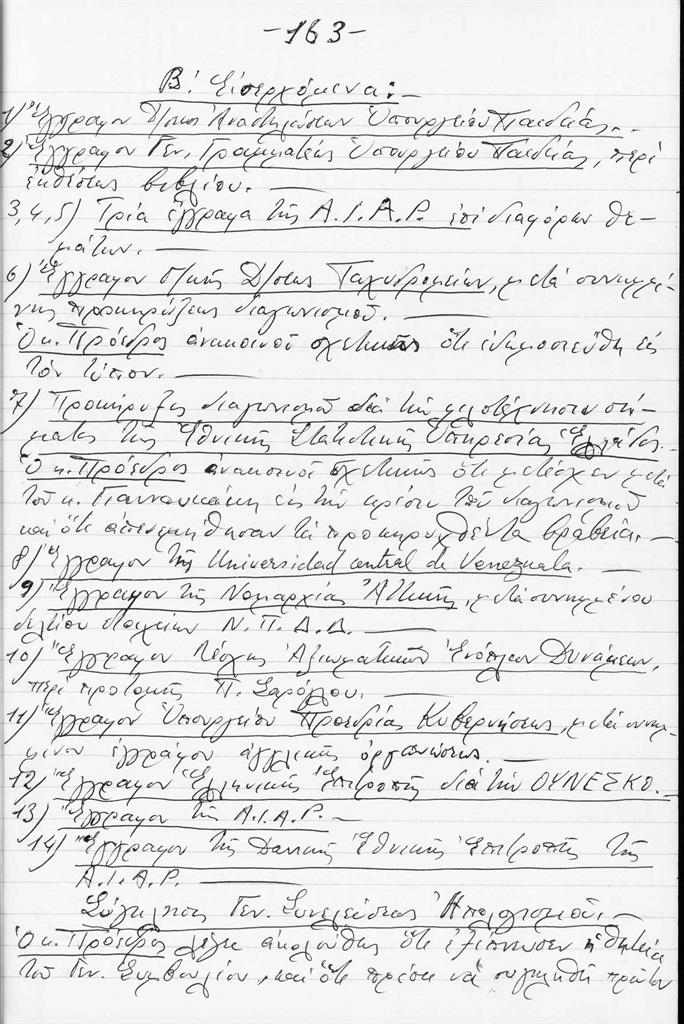 -163-
Β! Εἰσερχόμενα:-
1) Ἔγγραφον Δ/σεως Ἀναστηλώσεων Ὑπουργείου Παιδείας.-
2) Ἔγγραφον Γεν. Γραμματείας Ὑπουργείου Παιδείας, περί
ἐκθέσεως βιβλίου.-
3,4,5) Τρία ἔγγραφα τῆς A.I.A.P. ἐπί διαφόρων θε-
μάτων.-
6) Ἔγγραφον Δ/σεως Ταχυδρομείων, μετά συνημμέ-
νης προκηρύξεως διαγωνισμοῦ.
Ὁ κ. Πρόεδρος ἀνακοινοῖ σχετικῶς ὅτι ἐδημοσιεύθη εἰς
τόν τύπον.-
7) Προκήρυξις διαγωνισμοῦ διά τήν φιλοτέχνησιν σή-
ματος τῆς Ἐθνικῆς Στατιστικῆς Ὑπηρεσίας Ἑλλάδος.-
Ὁ κ. Πρόεδρος ἀνακοινοῖ σχετικῶς ὅτι μετέσχεν μετά
τοῦ κ. Γιαννουκάκη εἰς τήν κρίσιν τοῦ διαγωνισμοῦ
καί ὅτι ἀπενεμήθησαν τά προκηρυχθέντα βραβεῖα.-
8) Ἔγγραφον τῆς Universidad central de Venezuala.-
9) Ἔγγραφον τῆς Νομαρχίας Ἀττικῆς, μετά συνημμένου
δελτίου στοιχείων Ν.Π.Δ.Δ.-
10) Ἔγγραφον Λέσχης Ἀξιωματικῶν Ἐνόπλων Δυνάμεων,
περί προτομῆς Π. Σαρόγλου.-
11) Ἔγγραφον Ὑπουργείου Προεδρίας Κυβερνήσεως, μετά συνημ-
μένου ἐγγράφου ἀγγλικῆς ὀργανώσεως.-
12) Ἔγγραφον Ἑλληνικῆς Ἐπιτροπῆς διά τήν ΟΥΝΕΣΚΟ.-
13) Ἔγγραφον τῆς A.I.A.P.-
14) Ἔγγραφον τῆς Δανικῆς Ἐθνικῆς Ἐπιτροπῆς τῆς
A.I.A.P.-
Σύγκλησις Γεν. Συνελεύσεως Ἀπολογισμοῦ.-
Ὁ κ. Πρόεδρος λέγει ἀκολούθως ὅτι ἐξέπνευσεν ἡ θητεία
τοῦ Γεν. Συμβουλίου, καί ὅτι πρέπει νά συγκληθῆ πρῶτον